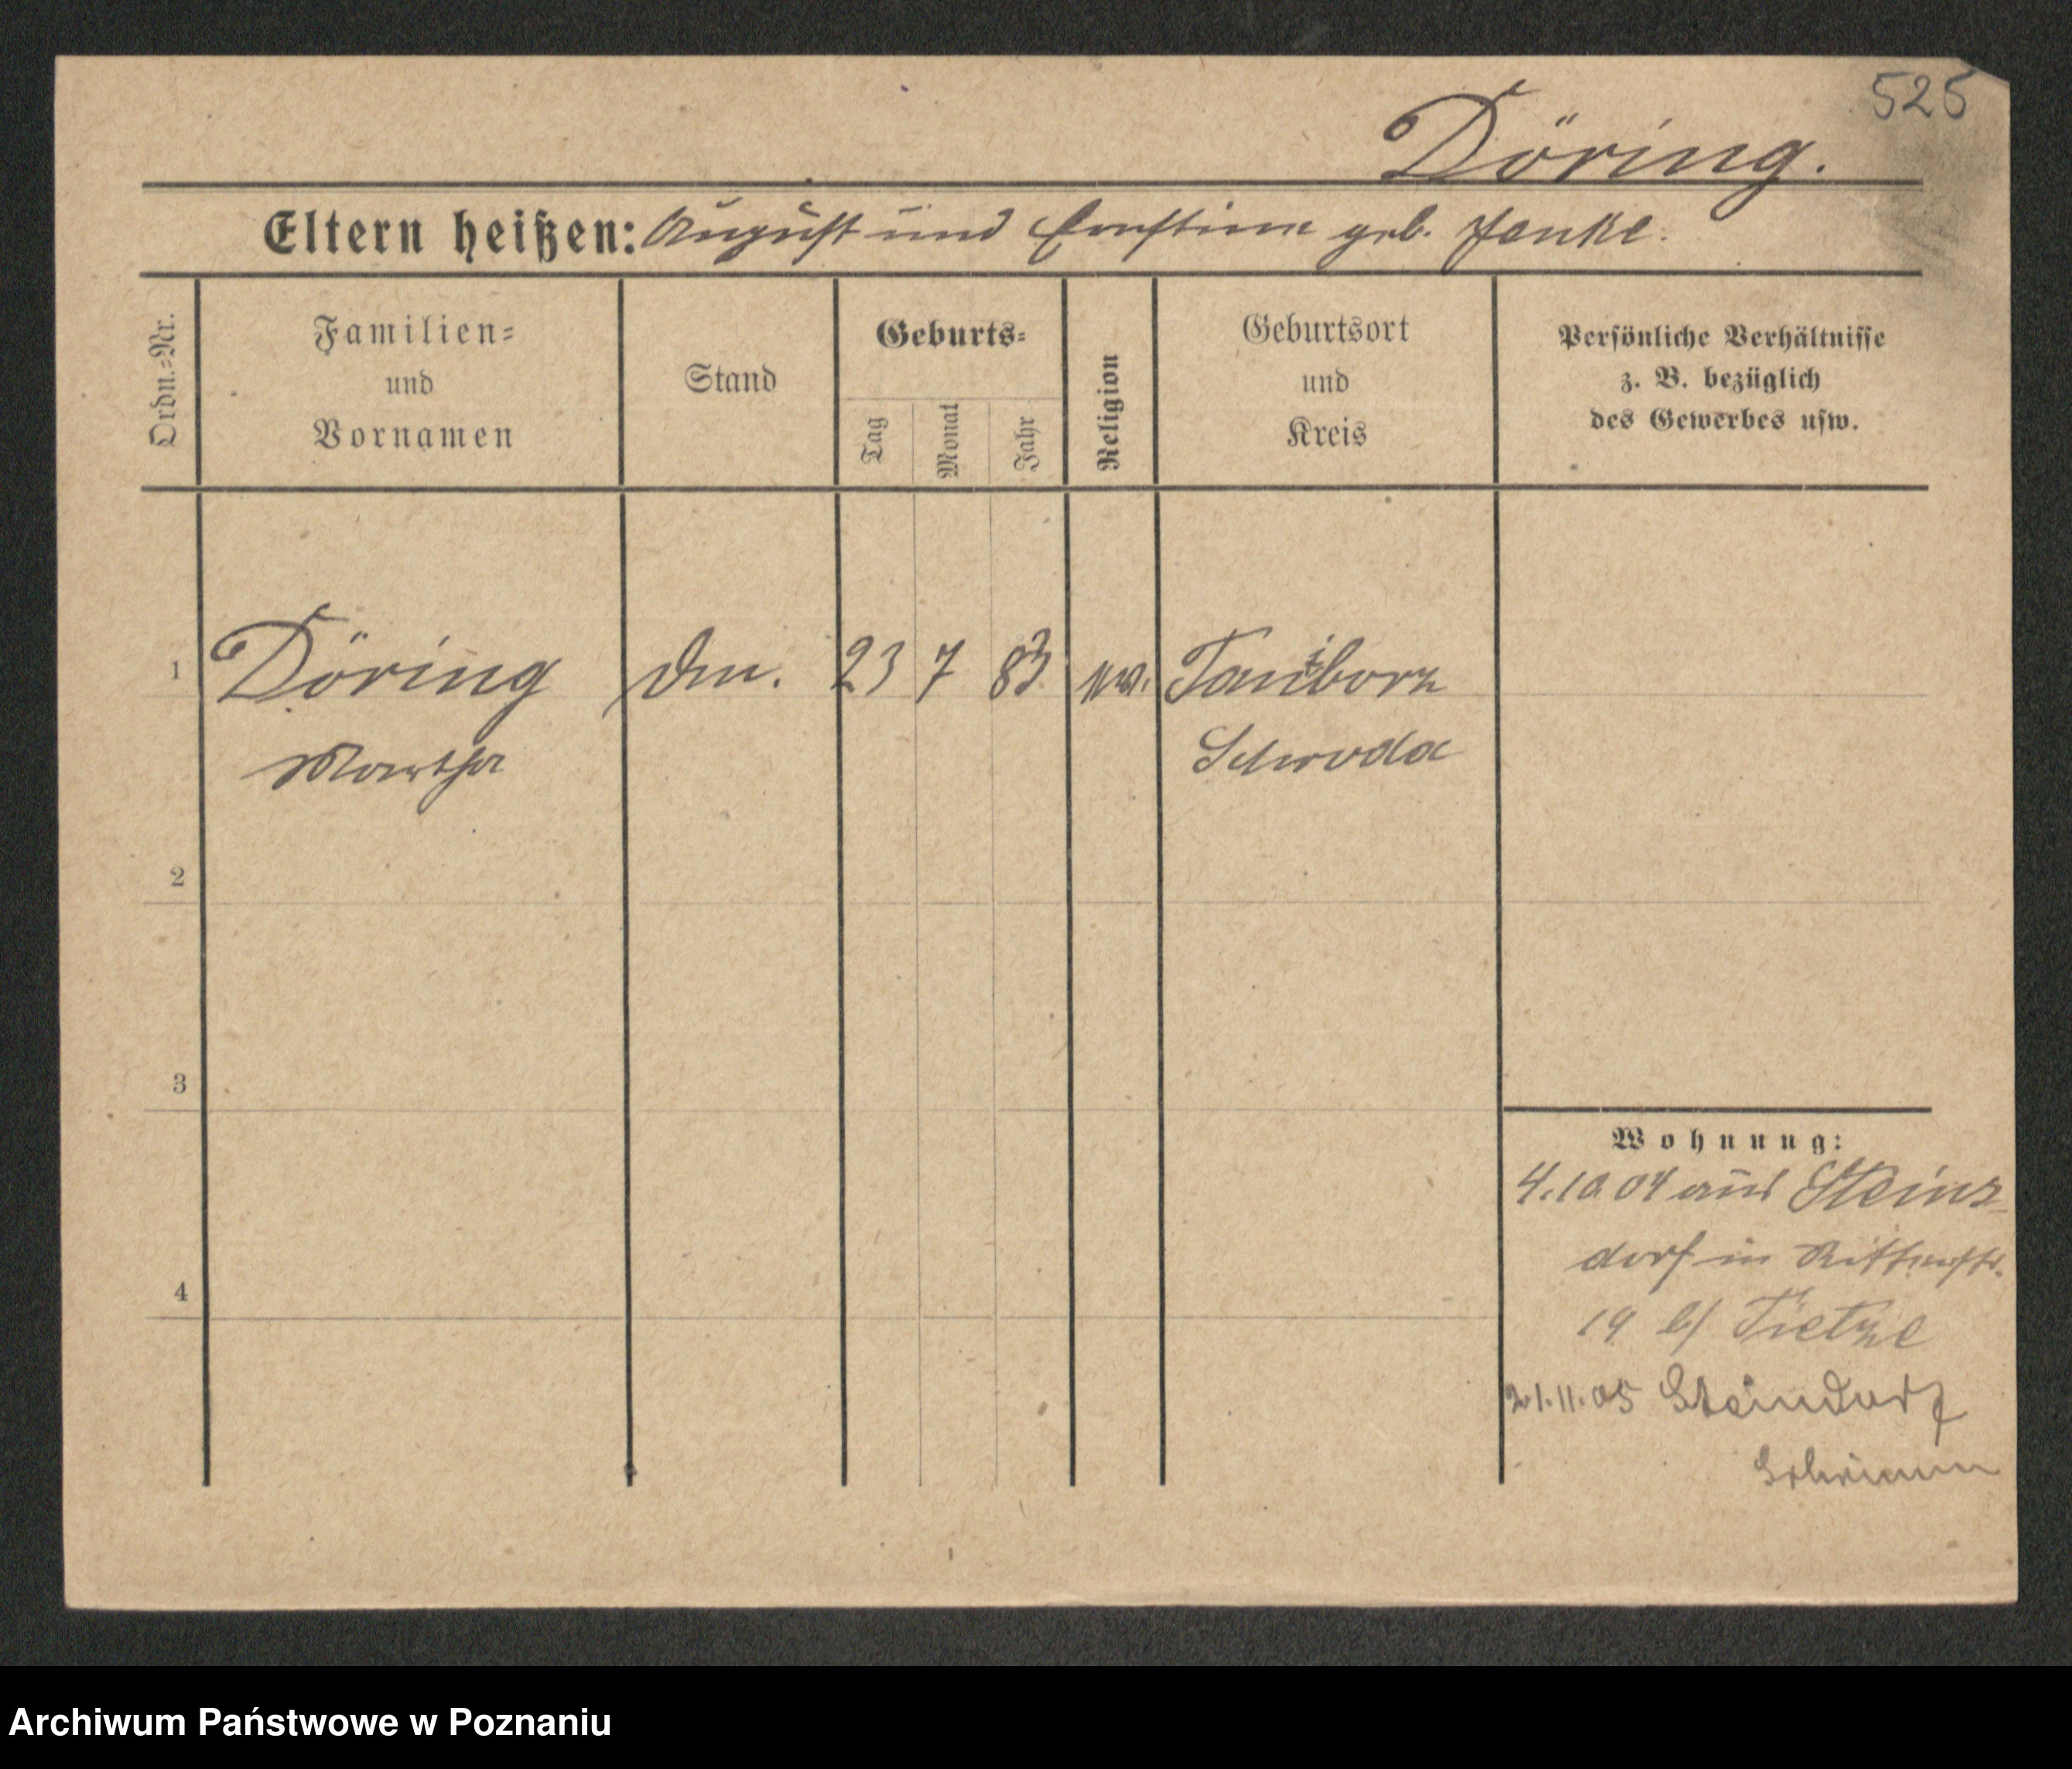 525
Döring.
Eltern heißen: August und Ernstine geb. Jenke.
Ordn.=Nr.
Familien=
und
Vornamen
Stand
Geburts=
Tag
Monat
Jahr
Religion
Geburtsort
und
Kreis
Persönliche Verhältnisse
z. B. bezüglich
des Gewerbes usw.
1 Döring 23 7 83 ev.
Martha Schroda
2
3
4
Wohnung:
4.10.04 aus Steins-
dorf in Ritterstr.
19 b/ Tietze
21.11.05 Steindorf
Schrimm
Archiwum Państwowe w Poznaniu